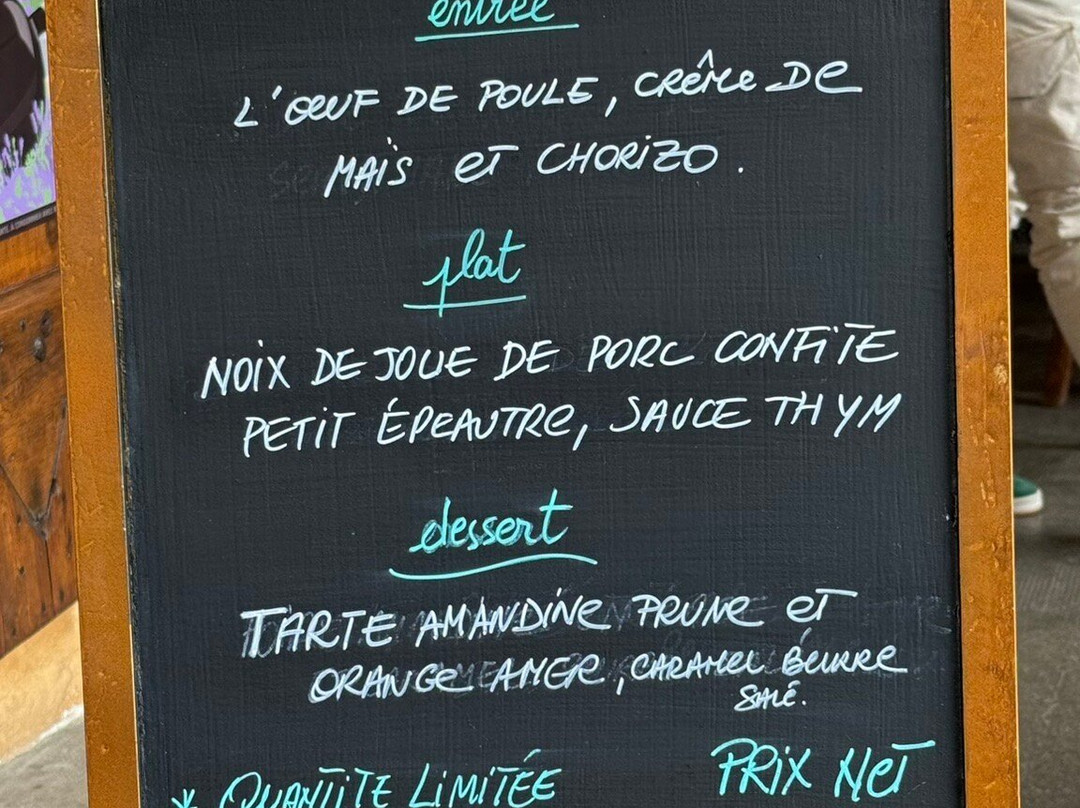 entrée
L'ŒUF DE POULE, CRÊME DE
MAÏS ET CHORIZO.
plat
NOIX DE JOUE DE PORC CONFITE
PETIT ÉPEAUTRE, SAUCE THYM
dessert
TARTE AMANDINE PRUNE ET
ORANGE AMER, CARAMEL BEURRE
SALÉ.
* QUANTITE LIMITÉE
PRIX NET